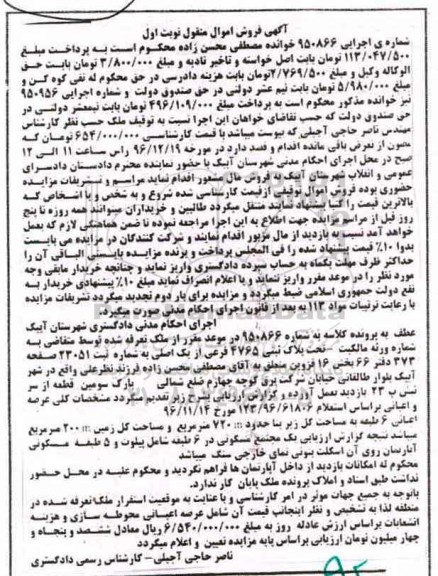 آگهی فروش اموال منقول نوبت اول
شماره ی اجرایی ۹۵۰۸۶۶ خوانده مصطفی محسن زاده محکوم است به پرداخت مبلغ
۱۱۳/۰۴۷/۵۰۰ تومان بابت اصل خواسته و تاخیر تادیه و مبلغ ۳/۸۰۰/۰۰۰ تومان بابت حق
الوکاله وکیل و مبلغ ۲/۷۶۹/۵۰۰ تومان بابت هزینه دادرسی در حق محکوم له نفی کوه کن و
مبلغ ۵/۹۸۰/۰۰۰ تومان بابت نیم عشر دولتی در حق صندوق دولت و شماره اجرایی ۹۵۰۹۵۶
نیز خوانده مذکور محکوم است به پرداخت مبلغ ۴۹۶/۱۰۹/۰۰۰ تومان بابت نیمعشر دولتی در
حق صندوق دولت که حسب تقاضای خواهان این اجرا نسبت به توقیف ملک حسب نظر کارشناس
مهندس ناصر حاجی آجیلی که پیوست میباشد با قیمت کارشناسی ۶۵۴/۰۰۰/۰۰۰ تومان که
مصون از تعرض باقی مانده اقدام و قصد دارد در مورخه ۹۶/۱۲/۱۹ راس ساعت ۱۱ الی ۱۲
صبح در محل اجرای احکام مدنی شهرستان آبیک با حضور نماینده محترم دادستان دادسرای
عمومی و انقلاب شهرستان آبیک به فروش مال مسطور اقدام نماید مراسم و تشریفات مزایده
حضوری بوده فروش اموال توقیفی ازقیمت کارشناسی شده شروع و به شخص و یا اشخاصی که
بالاترین قیمت را پیشنهاد نمایند منتقل میگردد طالبین و خریداران میتوانند همه روزه تا پنج
روز قبل از مراسم مزایده جهت اطلاع به این اجرا مراجعه نموده تا ضمن هماهنگی لازم که بعمل
خواهد آمد نسبت به بازدید از مال مزبور اقدام نمایند و شرکت کنندگان در مزایده می بایست
بدوا ۱۰٪ قیمت پیشنهاد شده را فی المجلس پرداخت و برنده مزایده بایستی الباقی آن را
حداکثر ظرف مهلت یکماه به حساب سپرده دادگستری واریز نماید و چنانچه خریدار مابقی وجه
مورد نظر را در موعد مقرر واریز ننماید و یا اعلام انصراف نماید مبلغ ۱۰٪ پیشنهادی خریدار به
نفع دولت جمهوری اسلامی ضبط میگردد و مزایده برای بار دوم تجدید میگردد تشریفات مزایده
با رعایت ترتیبات مواد ۱۱۳ به بعد از قانون اجرای احکام مدنی صورت میگیرد.
اجرای احکام مدنی دادگستری شهرستان آبیک
عطف به پرونده کلاسه به شماره ۹۵۰۸۶۶ در موعد مقرر از ملک تعرفه شده توسط متقاضی به
شماره ورثه مالکیت – تحت پلاک ثبتی ۴۷۶۵ فرعی از یک اصلی به شماره ثبت ۲۳۰۵۱ صفحه
۳۷۳ دفتر ۶۶ بخش ۱۶ قزوین متعلق به آقای مصطفی محسن زاده فرزند نظرعلی واقع در شهر
آبیک بلوار طالقانی خیابان شرکت برق کوچه چهارم ضلع شمالی پارک سوسن قطعه از سر
نبش پ ۲۳ بازدید بعمل آورده و گزارش ارزیابی بشرح زیر تقدیم میگردد مشخصات کلی عرصه
و اعیانی براساس استعلام ۱۲۳/۹۶/۶۱۸۰۶ مورخ ۹۶/۱۱/۱۴
اعیانی ۶ طبقه به مساحت کل زیر بنا حدود :: ۷۲۰ مترمربع و مساحت کل زمین ::: ۲۰۰ مترمربع
میباشد نتیجه گزارش ارزیابی یک مجتمع مسکونی در ۶ طبقه شامل پیلوت و ۵ طبقه مسکونی
آپارتمان روی آن اسکلت بتونی نمای خارجی سنگ میباشد
محکوم له امکانات بازدید از داخل آپارتمان ها فراهم نگردید و محکوم علیه در محل حضور
نداشت طبق اسناد و املاک پرونده ملک پایان کار ندارد.
باتوجه به جمیع جهات موثر در امر کارشناسی و با عنایت به موقعیت استقرار ملک تعرفه شده در
منطقه لذا به تشخیص و نظر اینجانب قیمت آن شامل عرصه اعیانی محوطه سازی و هزینه
انشعابات براساس ارزش عادله روز به مبلغ ۶/۵۴۰/۰۰۰/۰۰۰ ریال معادل ششصد و پنجاه و
چهار میلیون تومان ارزیابی براساس پایه مزایده تعیین و اعلام میگردد
ناصر حاجی آجیلی – کارشناس رسمی دادگستری